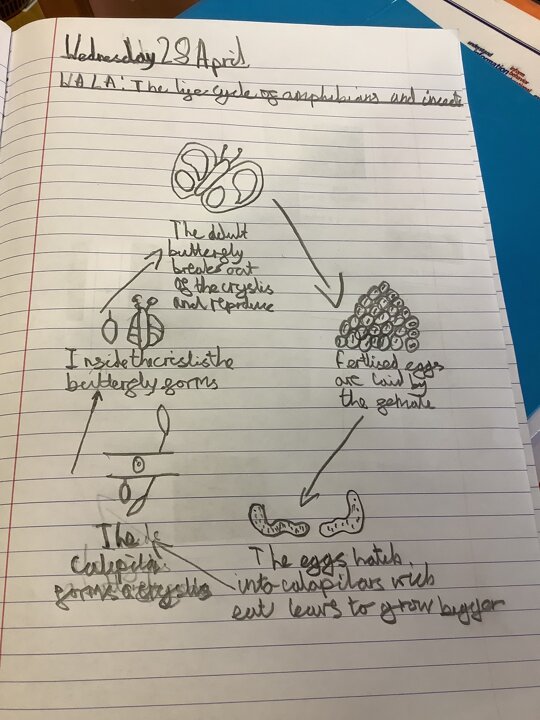 Wednesday 28 April
WALA: The lifecycle of amphibians and insects
The adult
butterfly
breaks out
of the cryslis
and reproduce
Inside the crislis the
butterfly forms
Fertlised eggs
are laid by
the female
The
catapilar
forms a cryslis
The eggs hatch
into catapilars wich
eat leavs to grow bigger
information